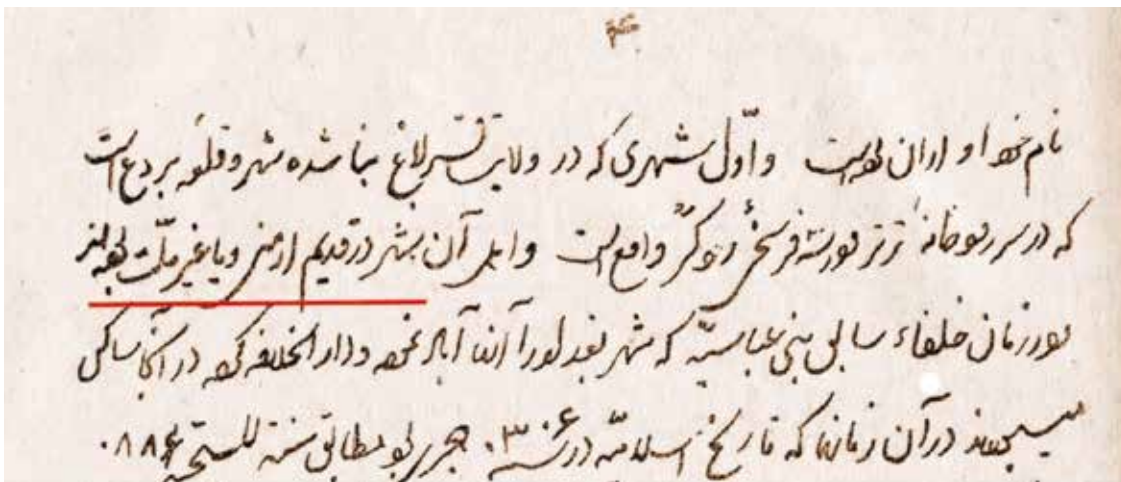 نام خود او اران بوده است و اوّل شهری که در ولایت قراباغ بنا شده شهر و قلعه بردع است
که در سر رودخانه ترتر بو سه فرسخی رود کر واقع است و اهل آن شهر در قدیم ارمنی و یا غیر ملّت بوده‌اند
خلفاء سابق بنی عباسیّه که شهر بغداد را آنها آباد نموده و دار الخلافه کرده در آنجا ساکن
میشدند در آن زمانها که تاریخ اسلامیّه در سنه ۳۰۶ هجری بود مطابق سنه المسیحی ۸۸۶